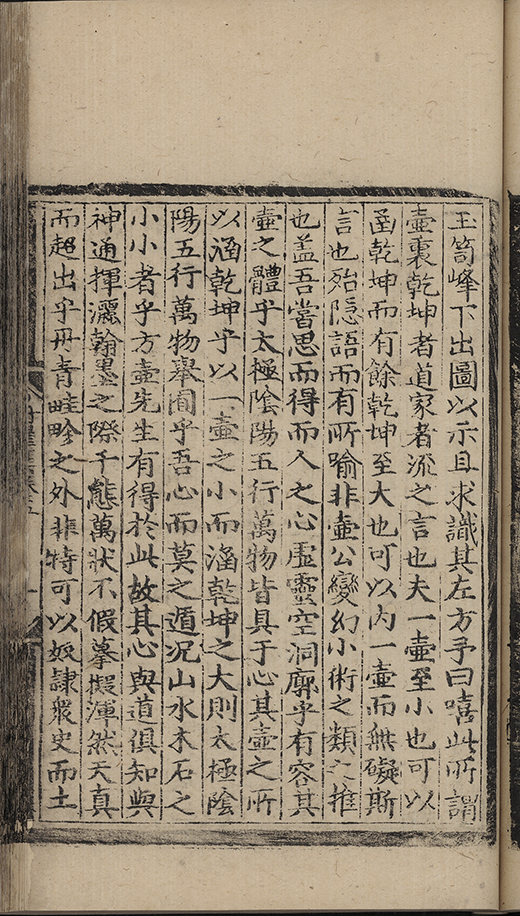 玉笥峰下出圖以示且求識其左方予曰嘻此所謂
壺裏乾坤者道家者流之言也夫一壺至小也可以
函乾坤而有餘乾坤至大也可以内一壺而無礙斯
言也殆隐語而有所喻非壺公變幻小術之類之推
也盖吾嘗思而得而人之心虛靈空洞廓乎有容其
壺之體乎太極陰陽五行萬物皆具于心其壺之所
以涵乾坤乎以一壺之小而涵乾坤之大則太極陰
陽五行萬物舉囿乎吾心而莫之遁况山水木石之
小小者乎方壺先生有得於此故其心與道俱知與
神通揮灑翰墨之際千態萬狀不假摹擬渾然天真
而超出乎丹青畦畛之外非特可以奴隷衆史而土